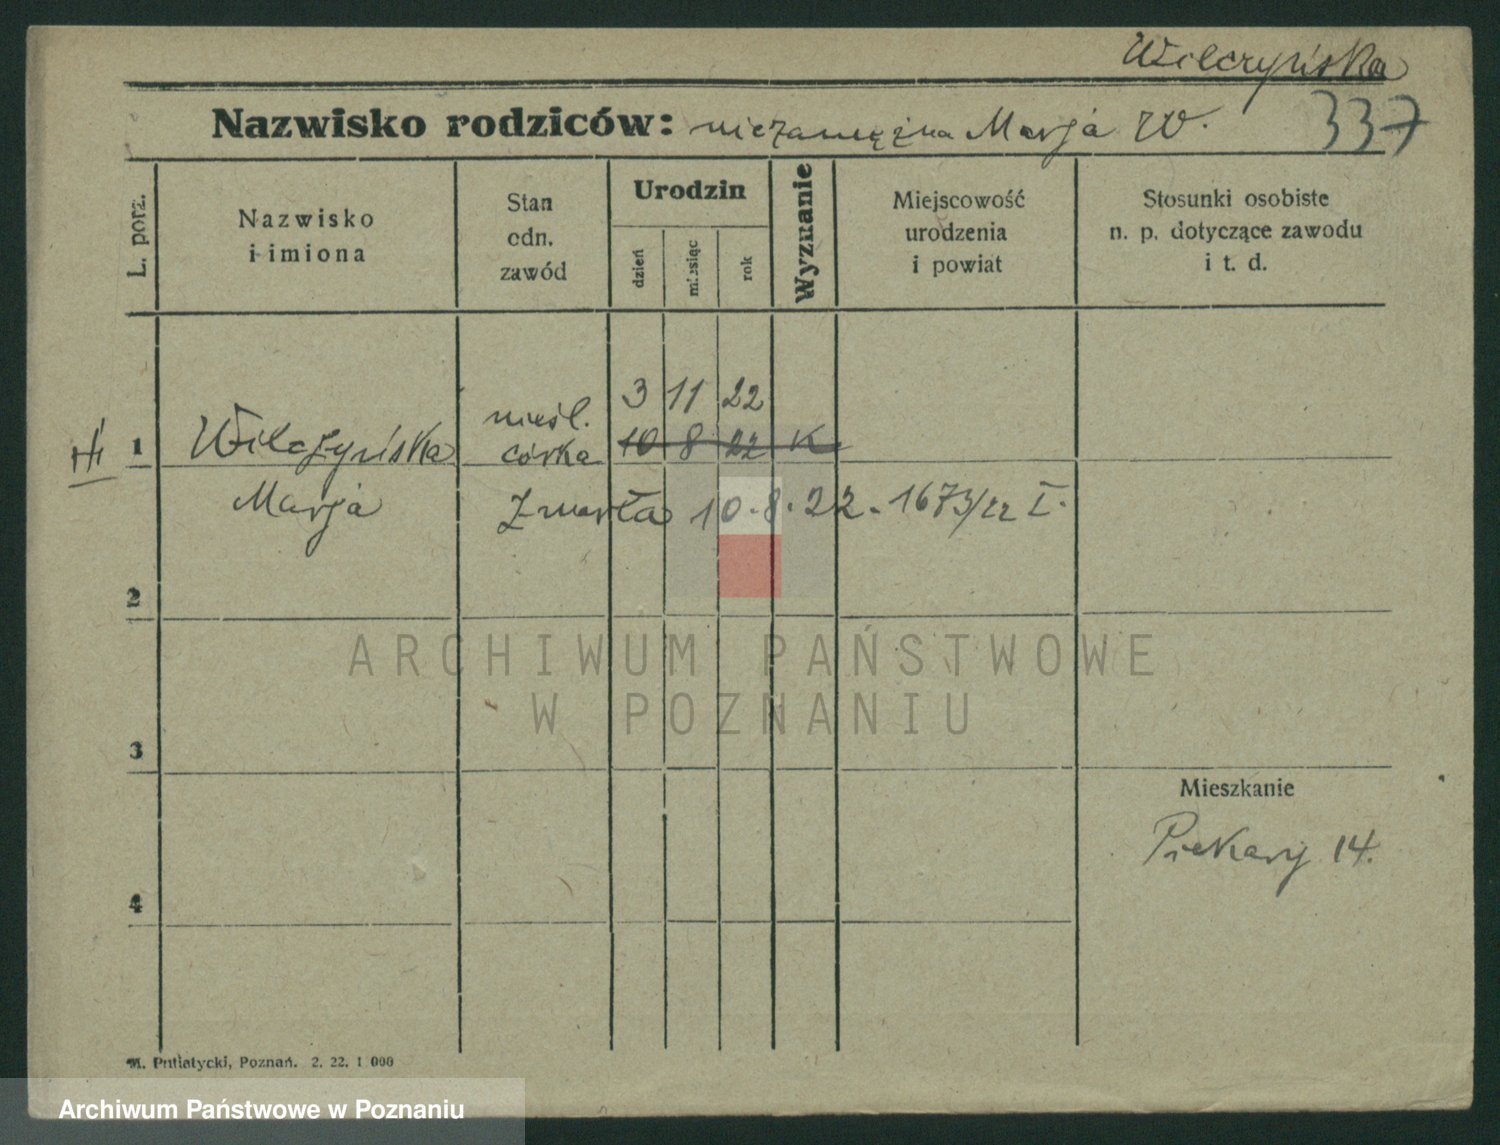 Wilczyńska
Nazwisko rodziców: niezamężna Marja W.
337
L. porz.
Nazwisko
i imiona
Stan
odn.
zawód
Urodzin
dzień
miesiąc
rok
Wyznanie
Miejscowość
urodzenia
i powiat
Stosunki osobiste
n. p. dotyczące zawodu
i t. d.
3 11 22
nieśl.
1 Wilczyńska córka 10 8 22 K
Marja Zmarła 10.8.22. 1673/22 I.
2
ARCHIWUM PAŃSTWOWE
W POZNANIU
3
Mieszkanie
Piekary 14.
4
M. Putiatycki, Poznań. 2. 22. 1 000
Archiwum Państwowe w Poznaniu